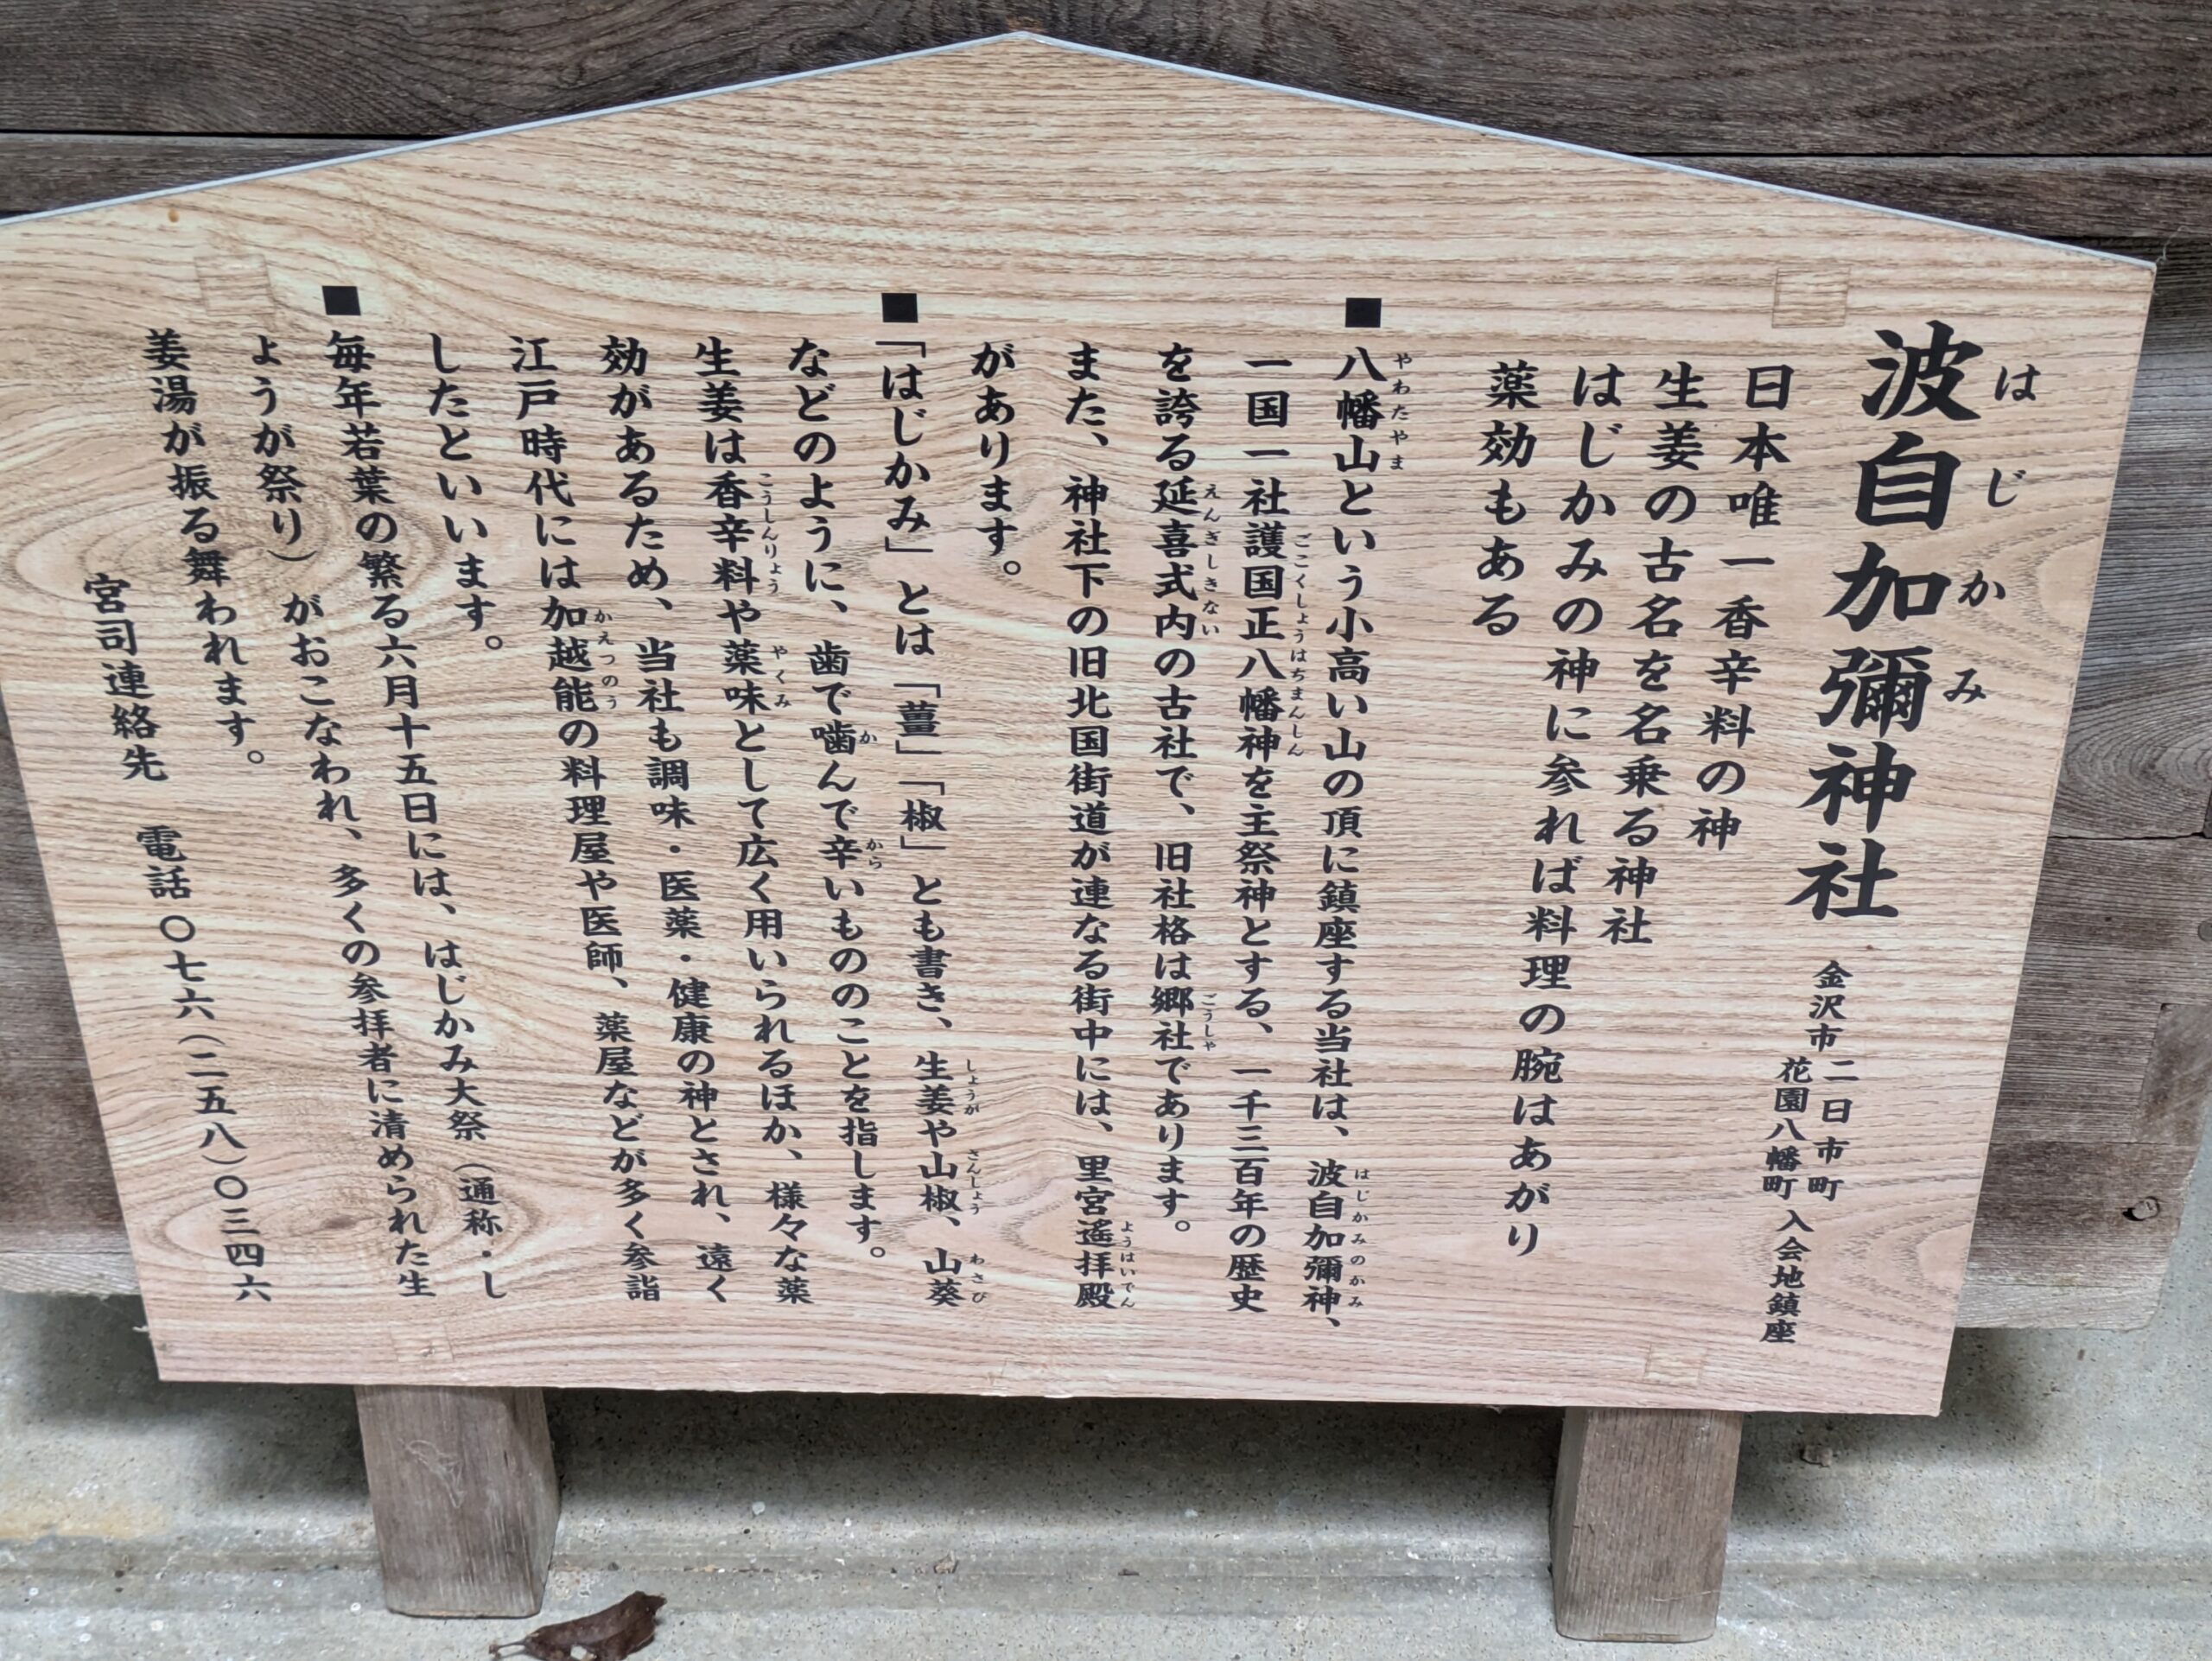 波自加彌神社
はじかみ
金沢市 二日市町
花園八幡町 入会地鎮座
日本唯一香辛料の神
生姜の古名を名乗る神社
はじかみの神に参れば料理の腕はあがり
薬効もある
■八幡山という小高い山の頂に鎮座する当社は、波自加彌神、
やわたやま はじかみのかみ
一国一社護国正八幡神を主祭神とする、一千三百年の歴史
ごこくしょうはちまんしん
を誇る延喜式内の古社で、旧社格は郷社であります。
えんぎしきない ごうしゃ
また、神社下の旧北国街道が連なる街中には、里宮遙拝殿
ようはいでん
があります。
■「はじかみ」とは「薑」「椒」とも書き、生姜や山椒、山葵
しょうが さんしょう わさび
などのように、歯で噛んで辛いもののことを指します。
か から
生姜は香辛料や薬味として広く用いられるほか、様々な薬
こうしんりょう やくみ
効があるため、当社も調味・医薬・健康の神とされ、遠く
江戸時代には加越能の料理屋や医師、薬屋などが多く参詣
かえつのう
したといいます。
■毎年若葉の繁る六月十五日には、はじかみ大祭（通称・し
ょうが祭り）がおこなわれ、多くの参拝者に清められた生
姜湯が振る舞われます。
宮司連絡先 電話〇七六（二五八）〇三四六